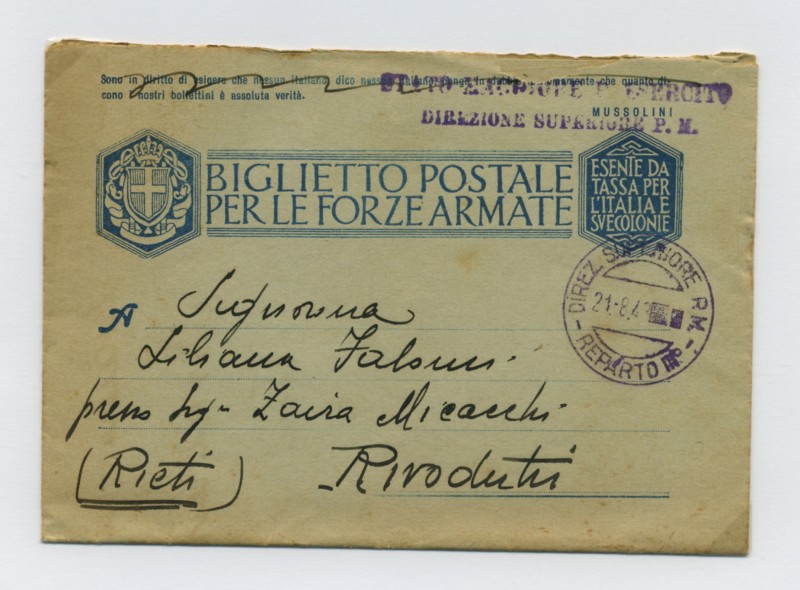 Sono in diritto di esigere che nessun italiano, dico nessun italiano, ponga in dubbio menomamente che quanto di-
cono i nostri bollettini è assoluta verità.
MUSSOLINI
STATO MAGGIORE R. ESERCITO
DIREZIONE SUPERIORE P. M.
BIGLIETTO POSTALE
PER LE FORZE ARMATE
ESENTE DA
TASSA PER
L'ITALIA E
SVE COLONIE
DIREZ. SUPERIORE P. M.
21-8.4
REPARTO III°
A Signorina
Liliana
presso Sig. Zaira Micacchi
(Rieti) Rivodutri